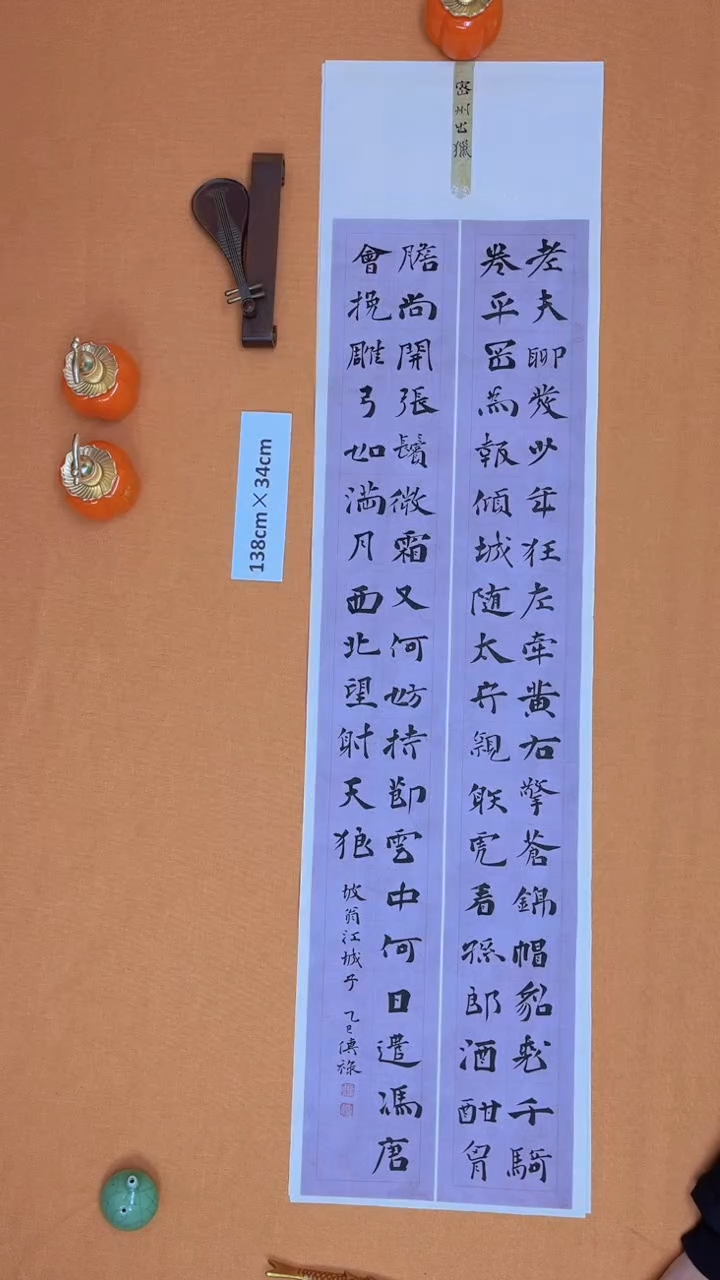 密州出獵
老夫聊發少年狂左牽黃右擎蒼錦帽貂裘千騎
卷平岡為報傾城隨太守親射虎看孫郎酒酣胷
膽尚開張鬢微霜又何妨持節雲中何日遣馮唐
會挽雕弓如滿月西北望射天狼 坡翁江城子 乙巳
138cm×34cm